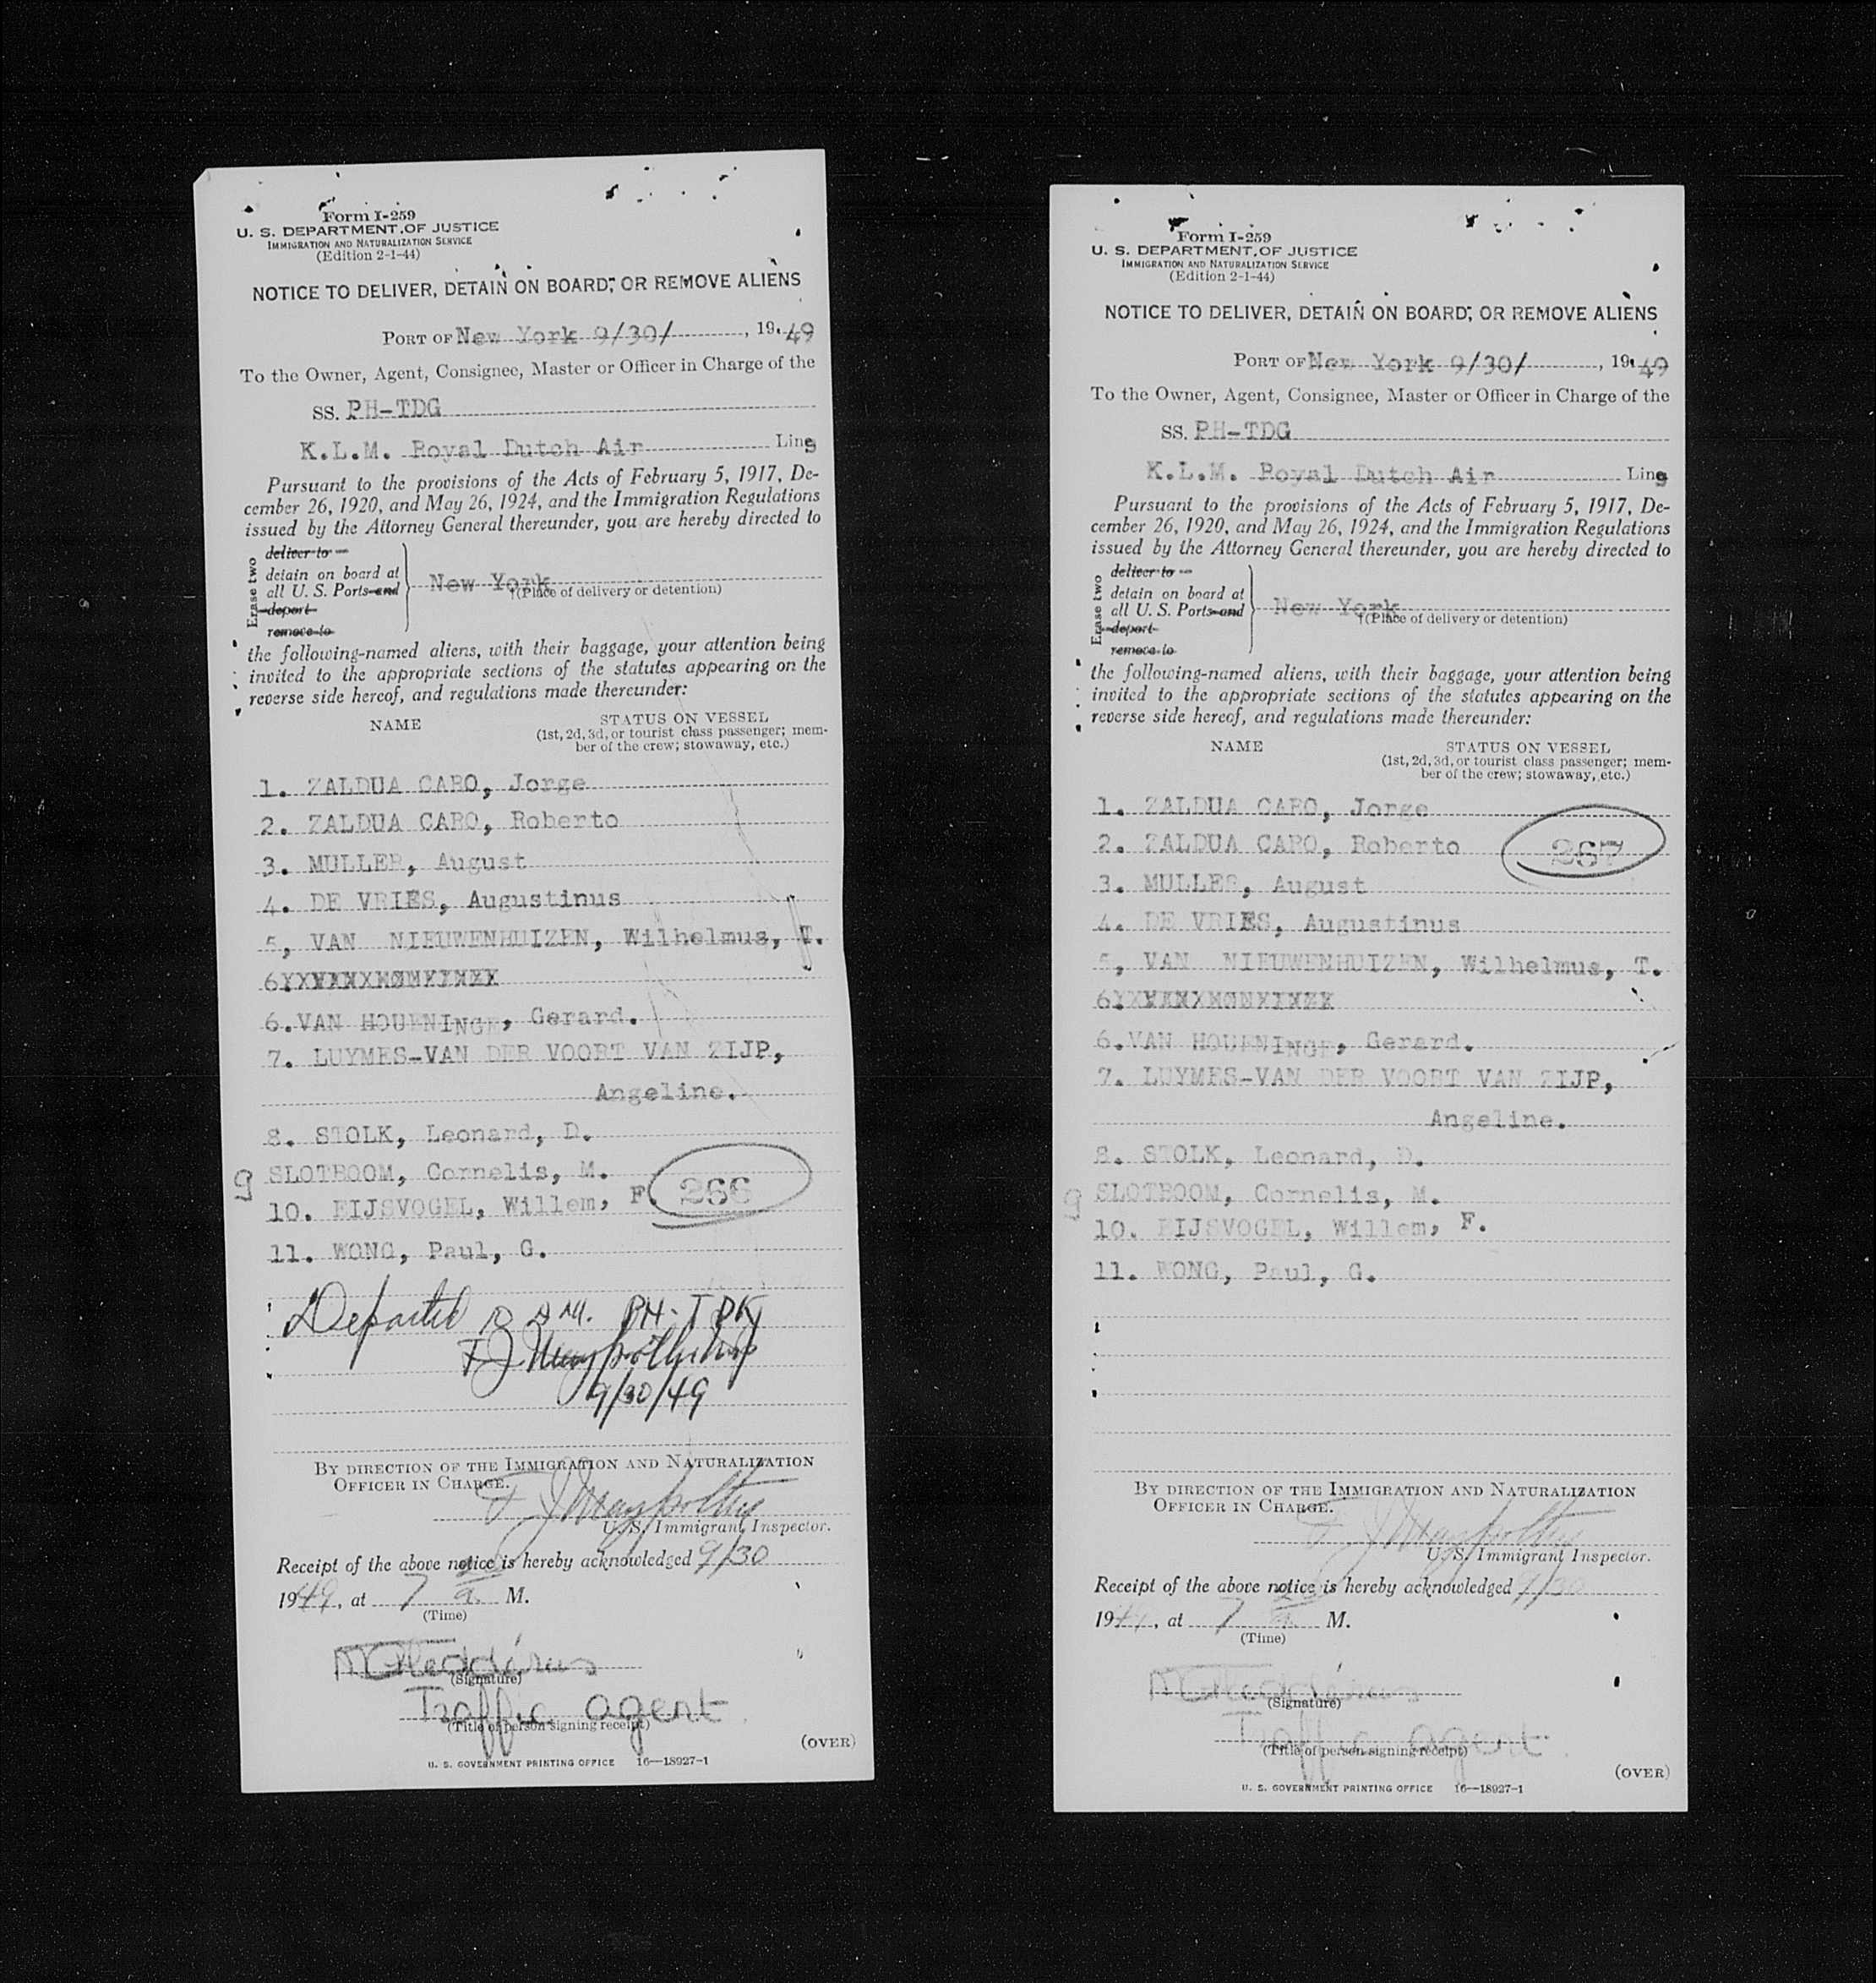 Form I-259
U. S. DEPARTMENT OF JUSTICE
IMMIGRATION AND NATURALIZATION SERVICE
(Edition 2-1-44)
NOTICE TO DELIVER, DETAIN ON BOARD, OR REMOVE ALIENS
PORT OF New York 9/30/, 19 49
To the Owner, Agent, Consignee, Master or Officer in Charge of the
SS. PH-TDG
K.L.M. Royal Dutch Air Lines
Pursuant to the provisions of the Acts of February 5, 1917, De-
cember 26, 1920, and May 26, 1924, and the Immigration Regulations
issued by the Attorney General thereunder, you are hereby directed to
Erase two
deliver to
detain on board at
all U. S. Ports and
deport
remove to
New York
(Place of delivery or detention)
the following-named aliens, with their baggage, your attention being
invited to the appropriate sections of the statutes appearing on the
reverse side hereof, and regulations made thereunder:
NAME STATUS ON VESSEL
(1st, 2d, 3d, or tourist class passenger; mem-
ber of the crew; stowaway, etc.)
1. ZALDUA CARO, Jorge
2. ZALDUA CARO, Roberto
3. MULLER, August
4. DE VRIES, Augustinus
5, VAN NIEUWENHUIZEN, Wilhelmus, T.
6.VAN HOUENINGE, Gerard.
7. LUYMES-VAN DER VOORT VAN ZIJP,
Angeline.
8. STOLK, Leonard, D.
9 SLOTBOOM, Cornelis, M.
10. RIJSVOGEL, Willem, F. 266
11. WONG, Paul, G.
Departed AM. PH-TDK
9/30/49
BY DIRECTION OF THE IMMIGRATION AND NATURALIZATION
OFFICER IN CHARGE.
U. S. Immigrant Inspector.
Receipt of the above notice is hereby acknowledged 9/30
1949, at 7 a. M.
(Time)
(Signature)
Traffic agent
(Title of person signing receipt)
(OVER)
U. S. GOVERNMENT PRINTING OFFICE 16—18927-1
Form I-259
U. S. DEPARTMENT OF JUSTICE
IMMIGRATION AND NATURALIZATION SERVICE
(Edition 2-1-44)
NOTICE TO DELIVER, DETAIN ON BOARD, OR REMOVE ALIENS
PORT OF New York 9/30/, 19 49
To the Owner, Agent, Consignee, Master or Officer in Charge of the
SS. PH-TDG
K.L.M. Royal Dutch Air Lines
Pursuant to the provisions of the Acts of February 5, 1917, De-
cember 26, 1920, and May 26, 1924, and the Immigration Regulations
issued by the Attorney General thereunder, you are hereby directed to
Erase two
deliver to
detain on board at
all U. S. Ports and
deport
remove to
New York
(Place of delivery or detention)
the following-named aliens, with their baggage, your attention being
invited to the appropriate sections of the statutes appearing on the
reverse side hereof, and regulations made thereunder:
NAME STATUS ON VESSEL
(1st, 2d, 3d, or tourist class passenger; mem-
ber of the crew; stowaway, etc.)
1. ZALDUA CARO, Jorge
2. ZALDUA CARO, Roberto 267
3. MULLER, August
4. DE VRIES, Augustinus
5, VAN NIEUWENHUIZEN, Wilhelmus, T.
6.VAN HOUENINGE, Gerard.
7. LUYMES-VAN DER VOORT VAN ZIJP,
Angeline.
8. STOLK, Leonard, D.
9 SLOTBOOM, Cornelis, M.
10. RIJSVOGEL, Willem, F.
11. WONG, Paul, G.
BY DIRECTION OF THE IMMIGRATION AND NATURALIZATION
OFFICER IN CHARGE.
U. S. Immigrant Inspector.
Receipt of the above notice is hereby acknowledged 9/30
1949, at 7 a. M.
(Time)
(Signature)
Traffic agent
(Title of person signing receipt)
(OVER)
U. S. GOVERNMENT PRINTING OFFICE 16—18927-1